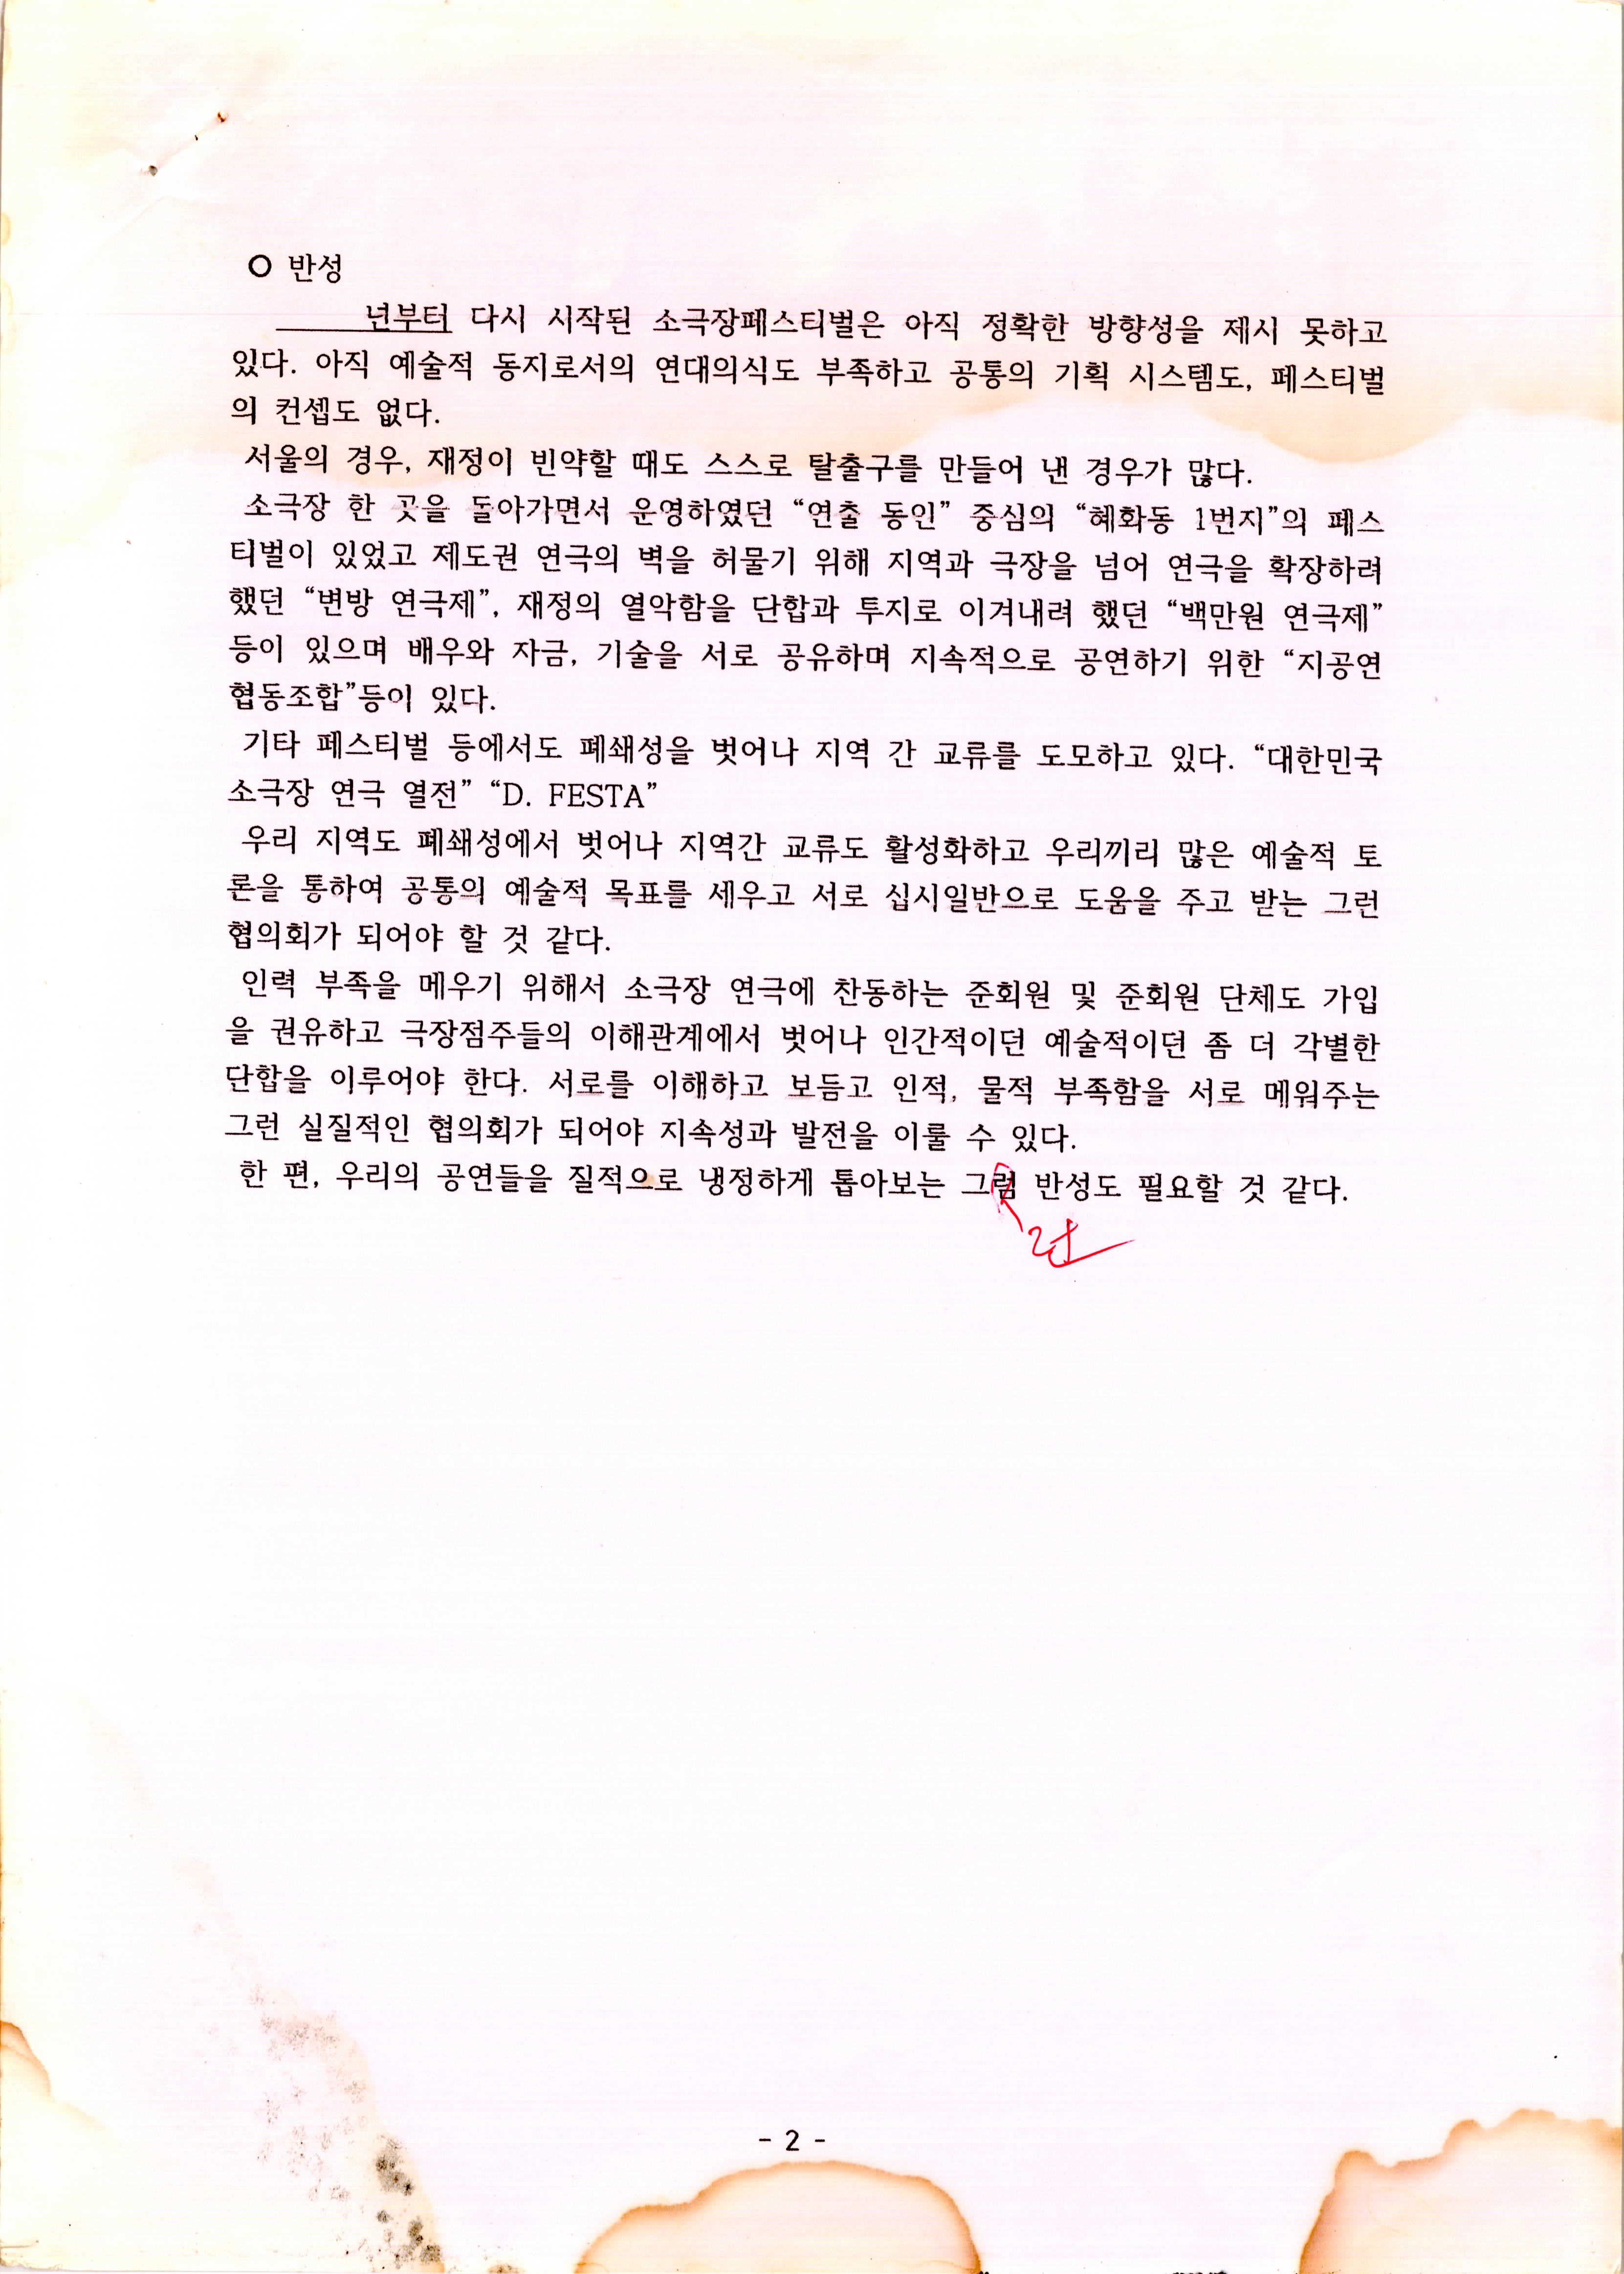 ○ 반성
______년부터 다시 시작된 소극장페스티벌은 아직 정확한 방향성을 제시 못하고
있다. 아직 예술적 동지로서의 연대의식도 부족하고 공통의 기획 시스템도, 페스티벌
의 컨셉도 없다.
서울의 경우, 재정이 빈약할 때도 스스로 탈출구를 만들어 낸 경우가 많다.
소극장 한 곳을 돌아가면서 운영하였던 “연출 동인” 중심의 “혜화동 1번지”의 페스
티벌이 있었고 제도권 연극의 벽을 허물기 위해 지역과 극장을 넘어 연극을 확장하려
했던 “변방 연극제”, 재정의 열악함을 단합과 투지로 이겨내려 했던 “백만원 연극제”
등이 있으며 배우와 자금, 기술을 서로 공유하며 지속적으로 공연하기 위한 “지공연
협동조합”등이 있다.
기타 페스티벌 등에서도 폐쇄성을 벗어나 지역 간 교류를 도모하고 있다. “대한민국
소극장 연극 열전” “D. FESTA”
우리 지역도 폐쇄성에서 벗어나 지역간 교류도 활성화하고 우리끼리 많은 예술적 토
론을 통하여 공통의 예술적 목표를 세우고 서로 십시일반으로 도움을 주고 받는 그런
협의회가 되어야 할 것 같다.
인력 부족을 메우기 위해서 소극장 연극에 찬동하는 준회원 및 준회원 단체도 가입
을 권유하고 극장점주들의 이해관계에서 벗어나 인간적이던 예술적이던 좀 더 각별한
단합을 이루어야 한다. 서로를 이해하고 보듬고 인적, 물적 부족함을 서로 메워주는
그런 실질적인 협의회가 되어야 지속성과 발전을 이룰 수 있다.
한 편, 우리의 공연들을 질적으로 냉정하게 톺아보는 그럼 반성도 필요할 것 같다.
런
- 2 -